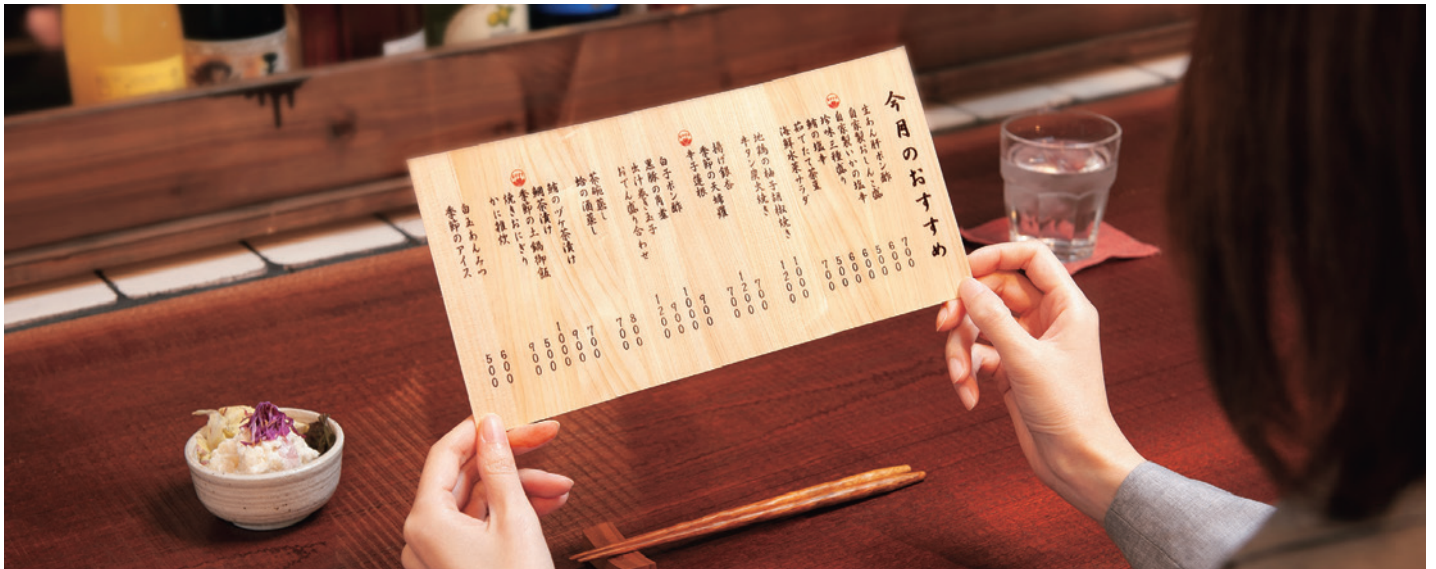 今月のおすすめ
生あん肝ポン酢 700
自家製おしんこ盛 600
自家製いかの塩辛 500
珍味三種盛り 600
の塩辛 600
茹でたて茶豆 500
海鮮水菜サラダ 700
地鶏の柚子胡椒焼き 1000
牛タン炭火焼き 1200
揚げ銀杏 700
季節の天婦羅 1200
辛子蓮根 700
白子ポン酢 900
黒豚の角煮 1000
出汁巻き玉子 900
おでん盛り合わせ 1200
茶碗蒸し 800
蛤の酒蒸し 700
のヅケ茶漬け 700
鯛茶漬け 900
季節の土鍋御飯 1000
焼きおにぎり 500
かに雑炊 900
白玉あんみつ 600
季節のアイス 500